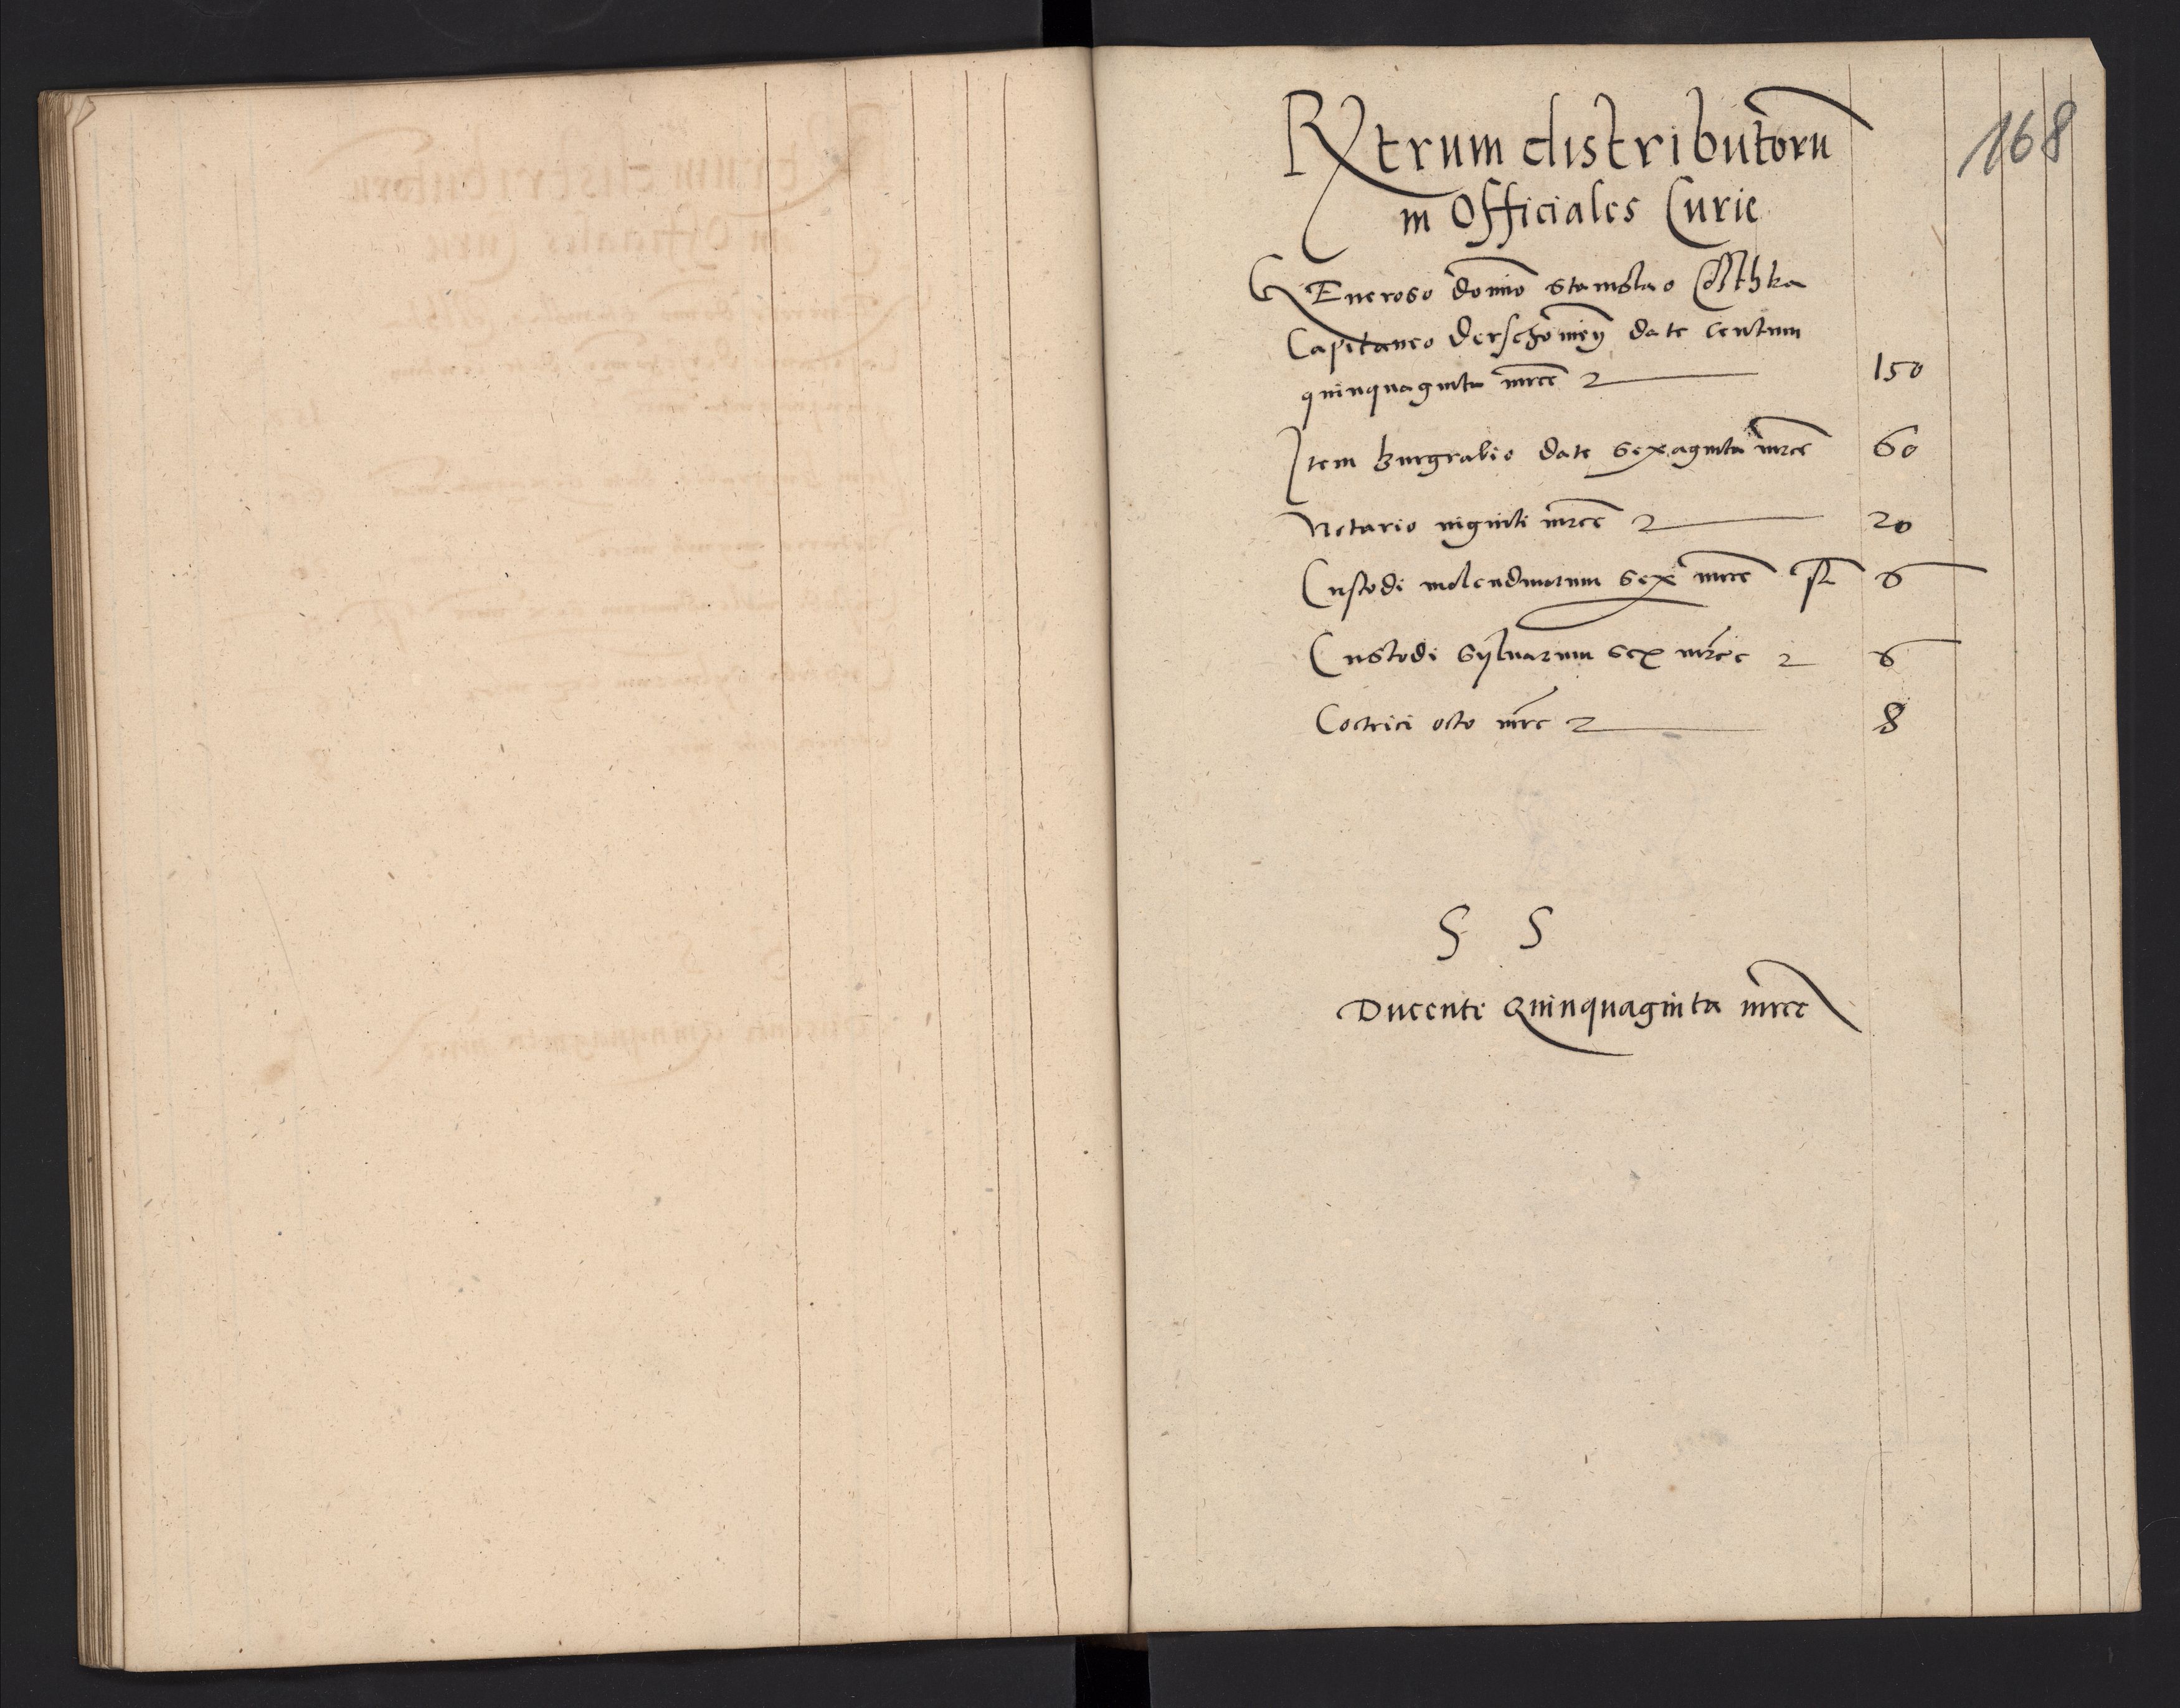 168
Rxtrum distributoru
in Officiales Curie
GEneroso domino Stanislao Costhka
Capitaneo derschoviens date centum
quinquaginta mrce 2 150
Item burgrabio date sexaginta mrce 60
Notario viginti mrce 2 20
Custodi molendinorum sex mrce 6
Custodi sylvarum sex mrce 2 6
Coctrici octo mrc 2 8
S S
Ducente Quinquaginta mrce